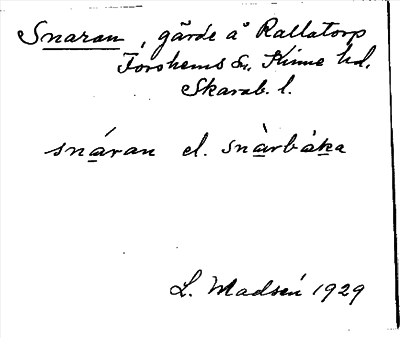 Snaran, gärde å Rallatorp
Forshems sn, Kinne hd,
Skarab. l.
snáran el. snàrbáka
L. Madsén 1929